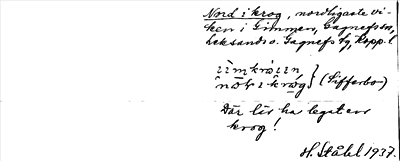 Nord i krog, nordligaste vi-
ken i Limmen, Gagnefssn,
Leksand o. Gagnefs tg, Kopp. l.
(Sifferbo)
Där lär ha legat en
krog!
H. Ståhl 1937.